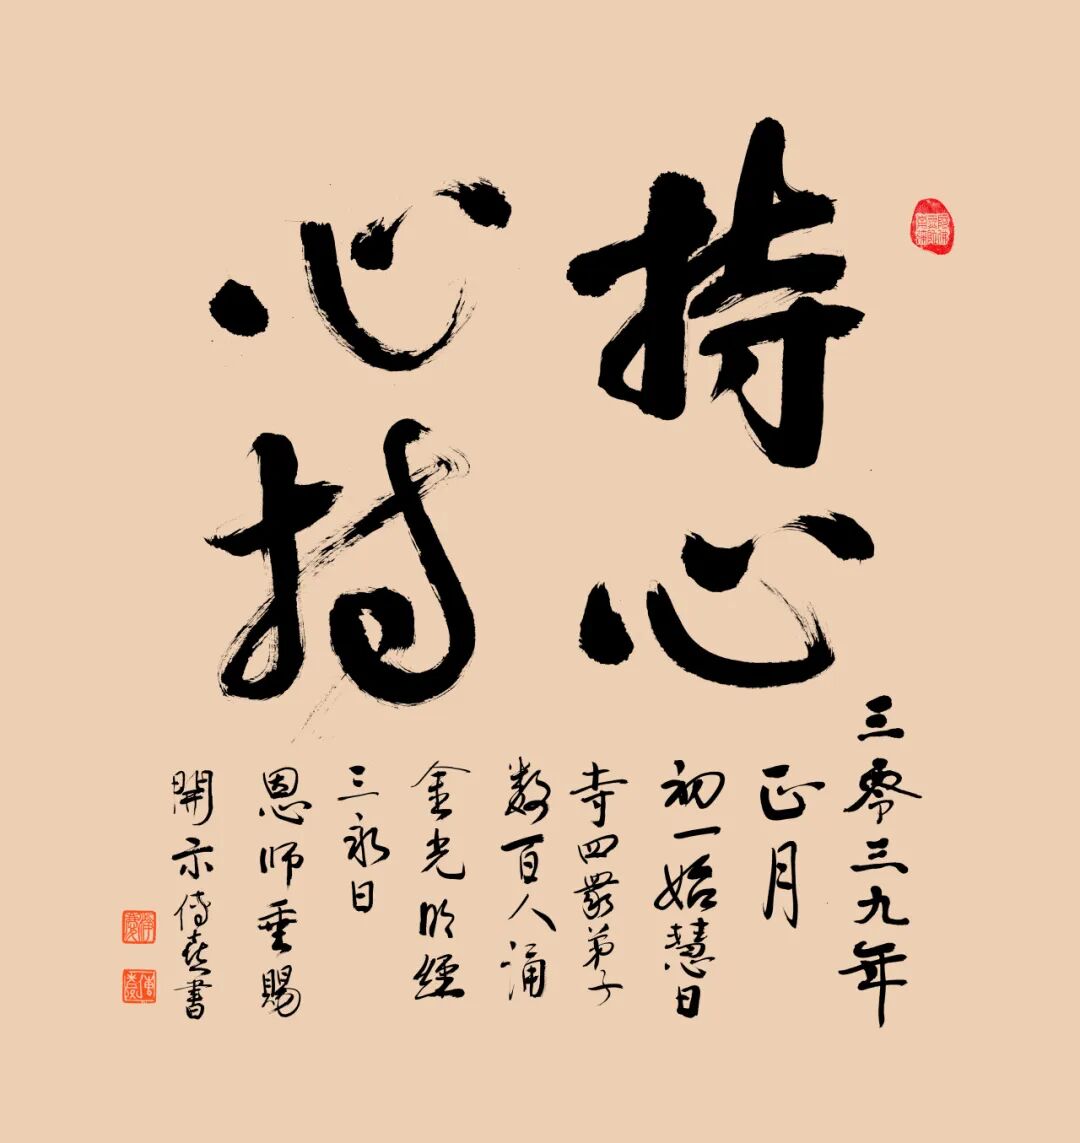 持心
心持
三零三九年
正月
初一始慧日
寺四眾弟子
数百人誦
金光明經
三永日
恩師垂賜
開示傳喜書